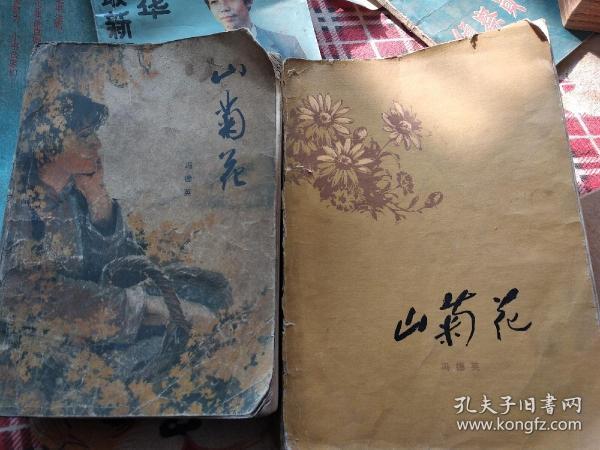 华
最新
山菊花
冯德英
山菊花
冯德英
孔夫子旧书网
www.kongfz.com